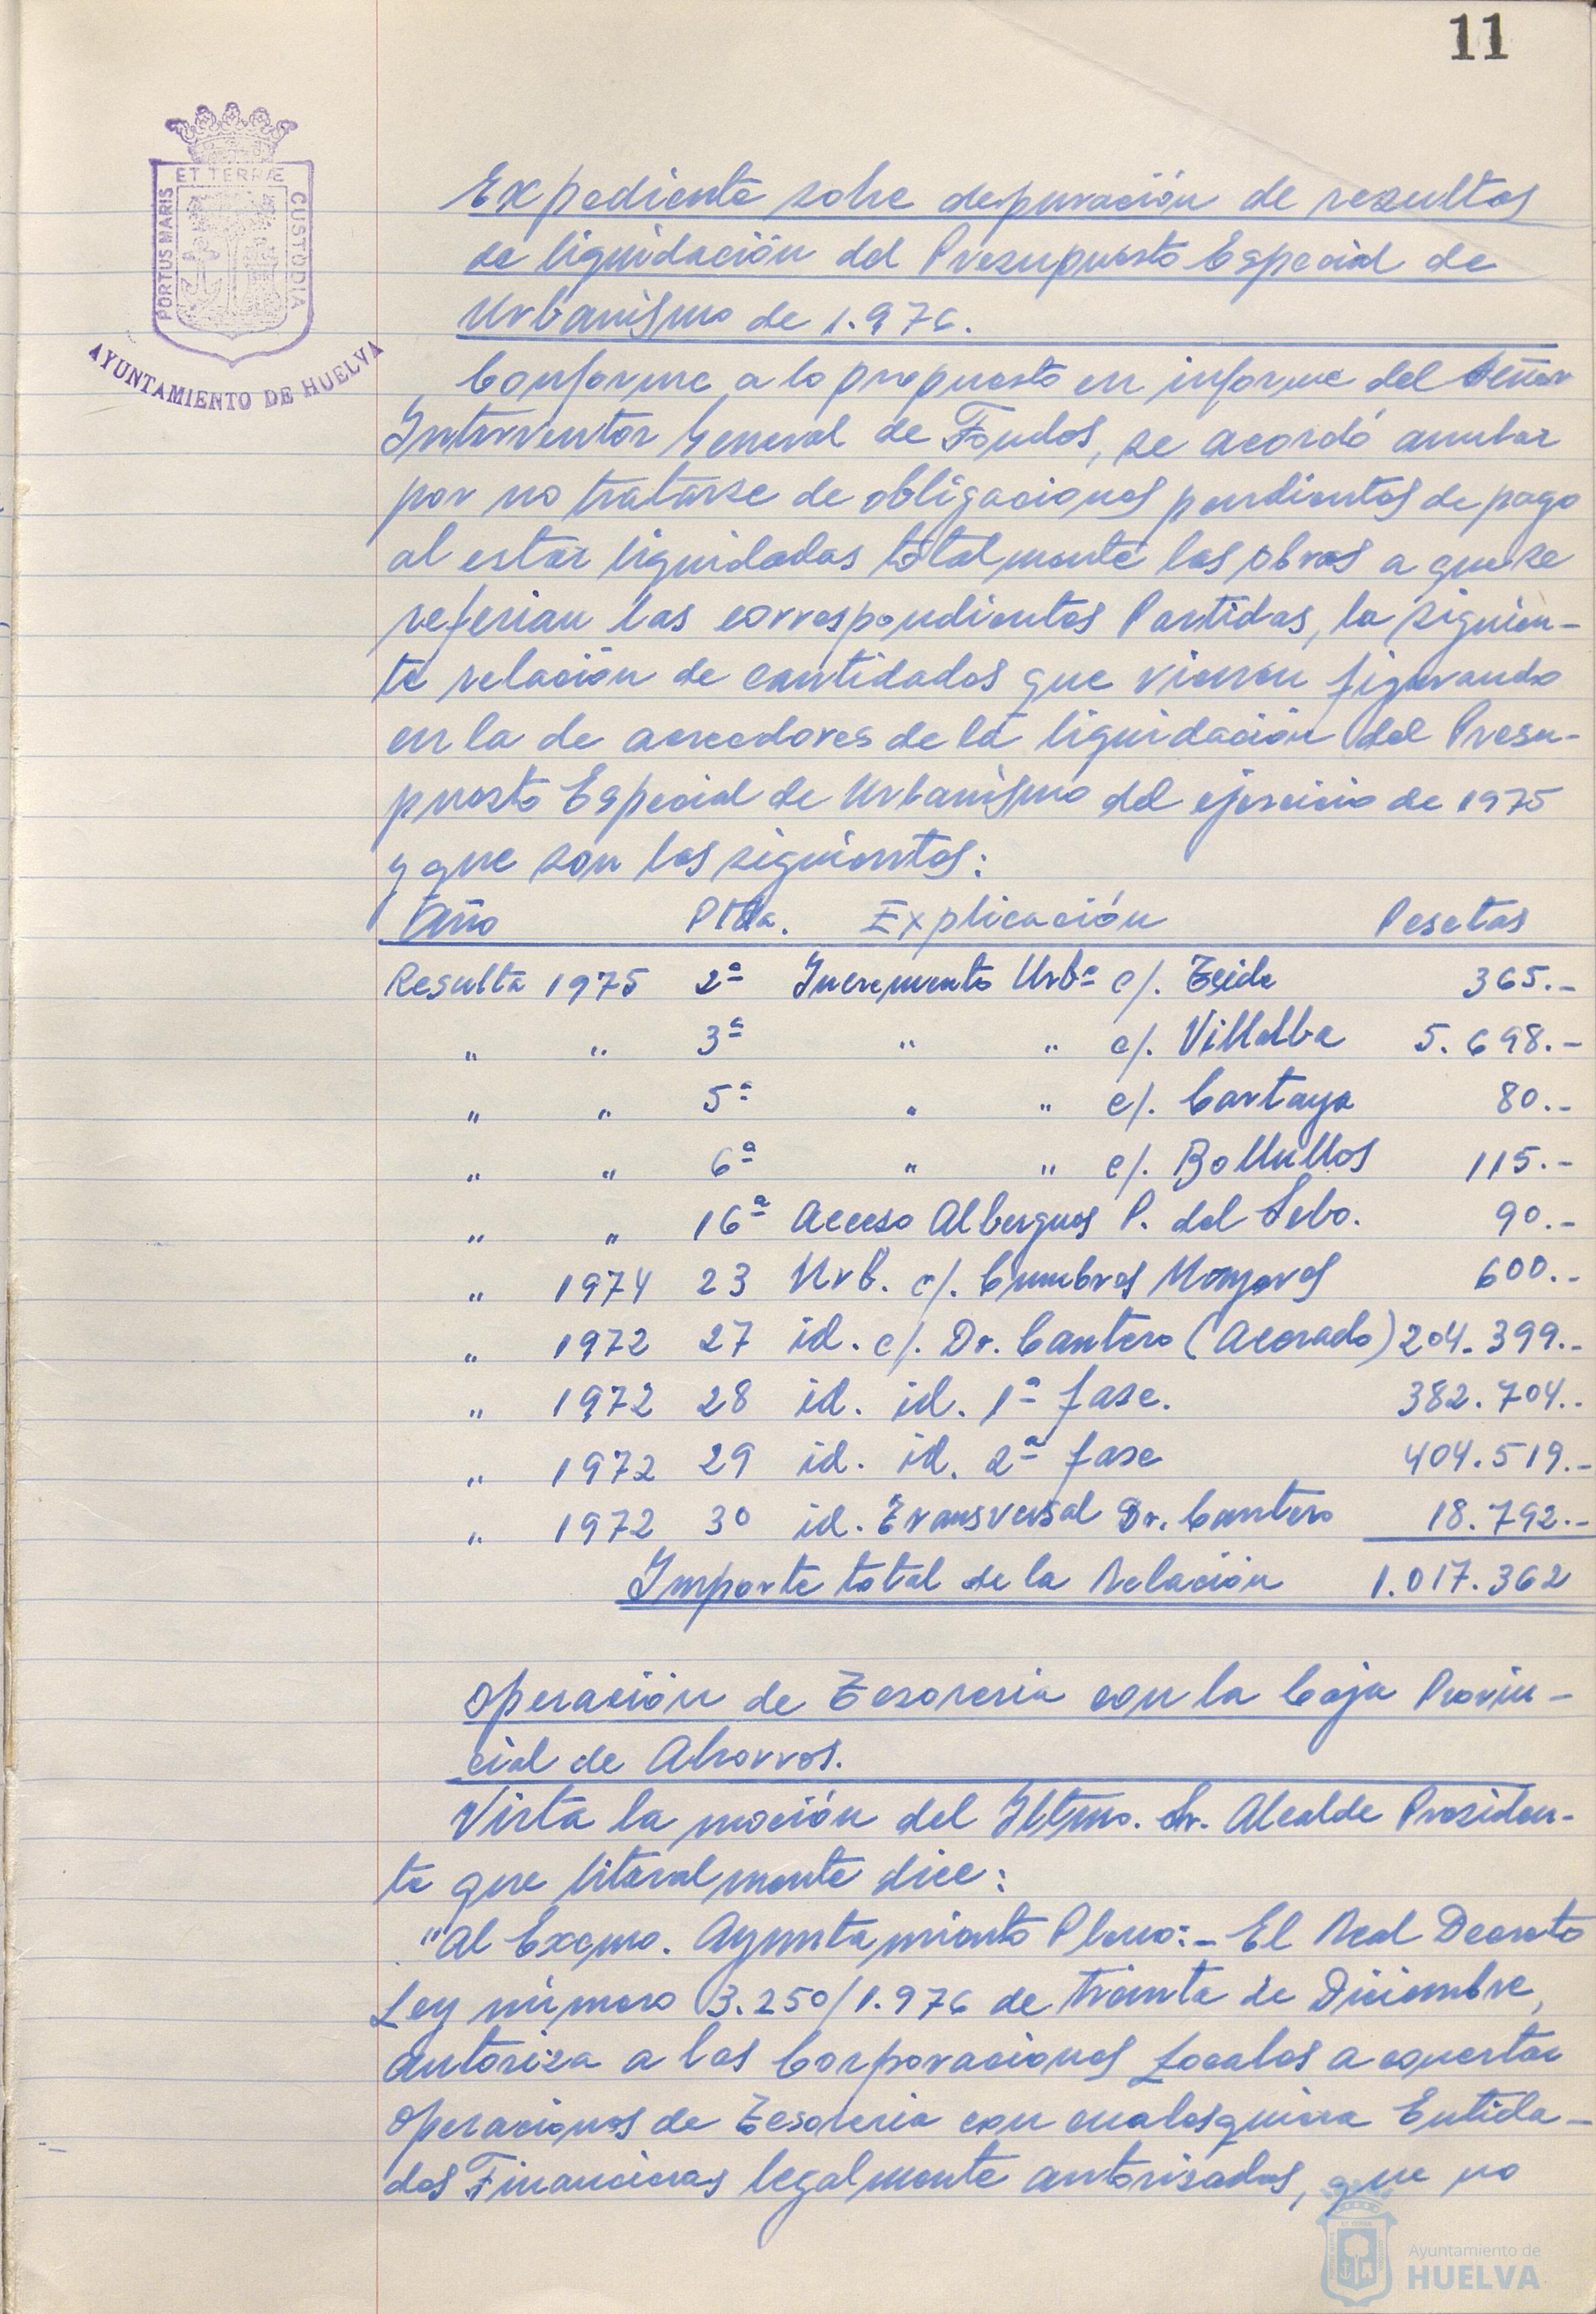 11
ET TERRÆ
PORTUS MARIS
CUSTODIA
AYUNTAMIENTO DE HUELVA
Expediente sobre depuración de resultas
de liquidación del Presupuesto Especial de
Urbanismo de 1.976.
Conforme a lo propuesto en informe del Señor
Interventor General de Fondos, se acordó anular
por no tratarse de obligaciones pendientes de pago
al estar liquidadas totalmente las obras a que se
referian las correspondientes Partidas, la siguien-
te relación de cantidades que vienen figurando
en la de acreedores de la liquidación del Presu-
puesto Especial de Urbanismo del ejercicio de 1975
y que son las siguientes:
Año Ptda. Explicación Pesetas
Resulta 1975 2ª Incremento Urbª c/. Teide 365.-
" " 3ª " " c/. Villalba 5.698.-
" " 5ª " " c/. Cartaya 80.-
" " 6ª " " c/. Bollullos 115.-
" " 16ª Acceso Albergues P. del Sebo. 90.-
" 1974 23 Urb. c/. Cumbres Mayores 600.-
" 1972 27 id. c/. Dr. Cantero (Acerado) 204.399.-
" 1972 28 id. id. 1ª fase. 382.704.-
" 1972 29 id. id. 2ª fase 404.519.-
" 1972 30 id. Transversal Dr. Cantero 18.792.-
Importe total de la Relación 1.017.362
Operación de Tesoreria con la Caja Provin-
cial de Ahorros.
Vista la moción del Iltmo. Sr. Alcalde Presiden-
te que literalmente dice:
"Al Excmo. Ayuntamiento Pleno:- El Real Decreto
Ley número 3.250/1.976 de treinta de Diciembre,
autoriza a las Corporaciones Locales a concertar
operaciones de Tesoreria con cualesquiera Entida-
des Financieras legalmente autorizadas, que no
Ayuntamiento de
HUELVA